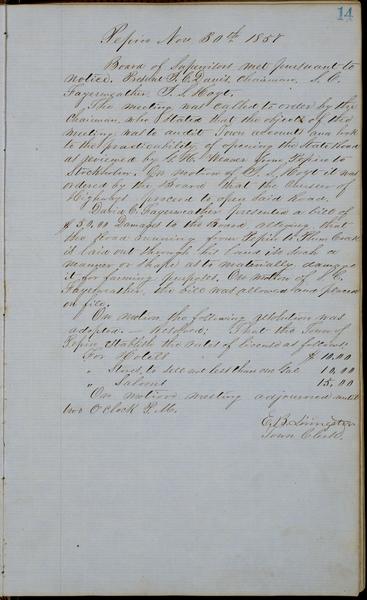 14
Pepin Nov 30th 1858
Board of Supervisors met pursuant to
notice. Present Chairman, S. C.
Fayerweather T. S. Hoyt.
The meeting was called to order by the
Chairman, who stated that the object of this
meeting was to audit Town accounts and look
to the practicability of opening the State Road
as reviewed by from Pepin to
Stockholm. On motion of T. S. Hoyt it was
ordered by the Board that the Overseer of
Highways proceed to open said Road.
David C. Fayerweather presented a bill of
$50,00 Damages to the Board alleging that
the Road running from Pepin to Plum Creek
is laid out through his land in such a
manner or shape as to materially damage
it for farming purposes. On motion of S. C.
Fayerweather, the bill was allowed and placed
on file.
On motion the following resolution was
adopted. - Resolved; That the Town of
Pepin, establish the rates of License as follows:
For Hotels $10,00
" Stores, to sell not less than one Gal. 10,00
" Saloons 15,00
On motion meeting adjourned until
two O'clock P.M.
E. B. Livingston
Town Clerk.